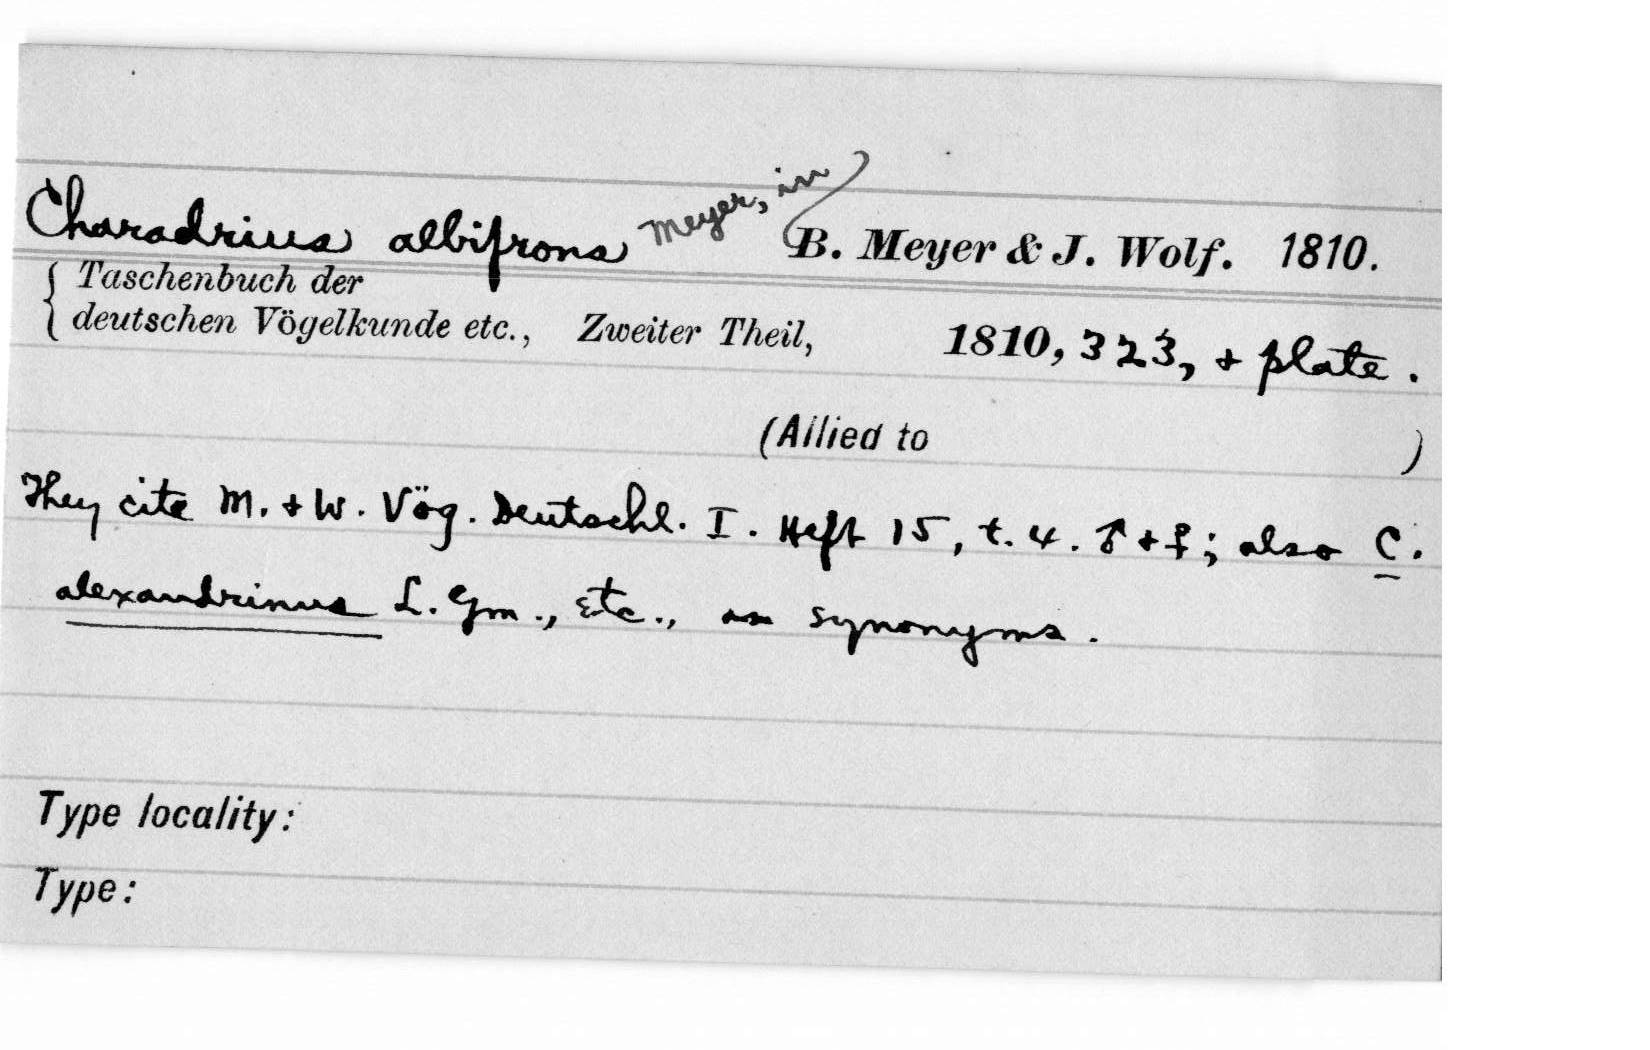 Charadrius albifrons Meyer, in B. Meyer & J. Wolf. 1810.
Taschenbuch der
deutschen Vögelkunde etc., Zweiter Theil, 1810, 323, + plate.
(Allied to )
They cite M. + W. Vög. Deutschl. I. Heft 15, t. 4. ♂ + ♀; also C.
alexandrinus L. Gm., etc., as synonyms.
Type locality:
Type: